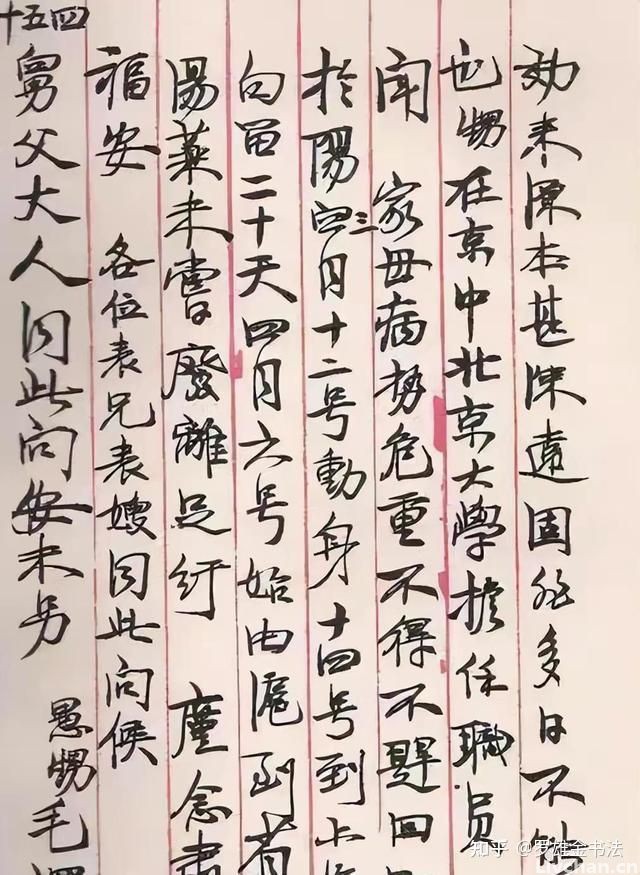 来 本甚 遠固 多日不能
也甥在京中北京大學擔任職員
闻 家母病势危重不得不趕回
於陽三月十二号動身十四号到上
向留二十天四月六号始由滬到省
湯藥未嘗廢離足紓 廑念肃
福安 各位表兄表嫂同此问候
四五十
舅父大人同此问安未另
愚甥毛
知乎 @罗雄金书法